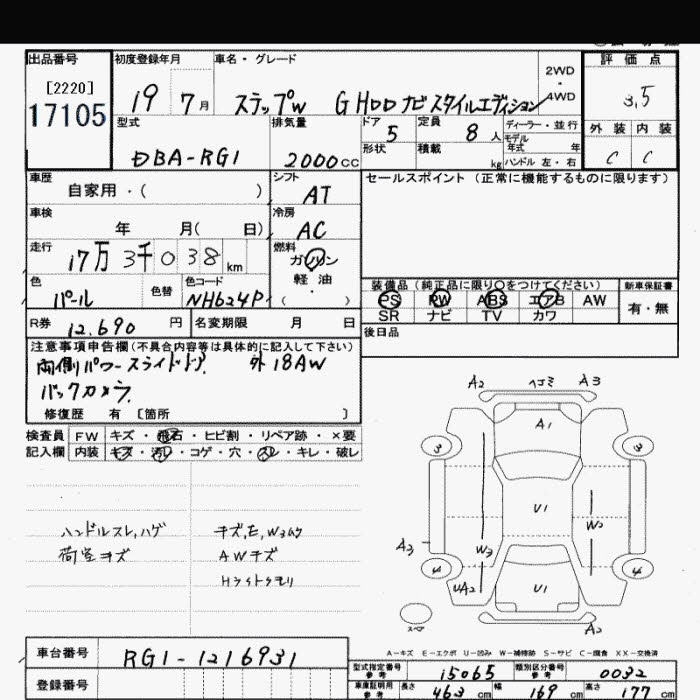 出品番号 初度登録年月 車名・グレード 評価点
[2220]
17105
19 7月 ステップW G HDD ナビスタイルエディション 2WD 4WD 3.5
型式 排気量 ドア 定員 ディーラー・並行 外装 内装
5 8人 モデル年式 年
DBA-RG1 2000cc 形状 積載 kg ハンドル 左・右 C C
車歴 シフト セールスポイント(正常に機能するものに限ります)
自家用・( ) AT
車検 冷房
年 月( 日) AC
走行 燃料
17万3千038km ガソリン
軽油
色 色替 色コード ( ) 装備品(純正品に限り○をつけてください) 新車保証書
パール NH624P PS PW ABS エアB AW 有・無
SR ナビ TV カワ
R券 12,690円 名変期限 月 日 後日品
注意事項申告欄(不具合内容等は具体的に記入して下さい)
両側パワースライドドア. 外18AW
バックカメラ
修復歴 有 [箇所 ]
検査員 FW キズ・飛石・ヒビ割・リペア跡・×要
記入欄 内装 キズ・汚レ・コゲ・穴・スレ・キレ・破レ
A2 ヘコミ A3
A1
3 3
U1
W2
A3 W3
4 4
UA2
U1
スペア
A2
ハンドルスレ,ハゲ キズ,E,W3ムラ
荷室キズ AWキズ
Hライトクモリ
A-キズ E-エクボ U-凹み W-補修跡 S-サビ C-腐食 XX-交換済
車台番号 RG1-1216931
登録番号
型式指定番号 参考 15065 類別区分番号 参考 0032
車庫証明用 参考 長さ 463cm 幅 169cm 高さ 177cm